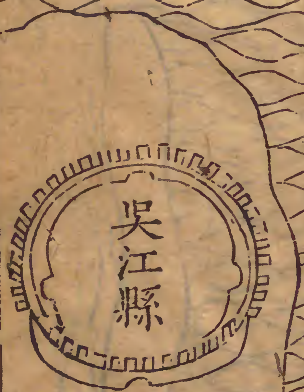 吳江縣